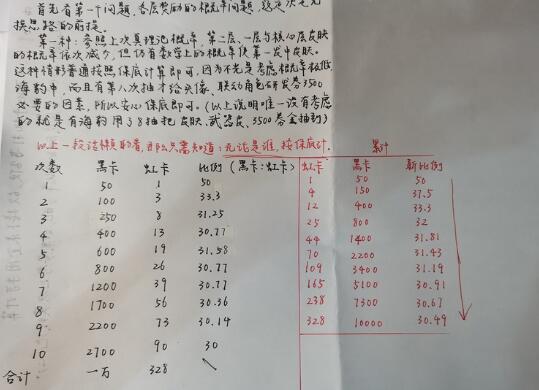 首先有第一个问题,各层奖励的概率问题,这是决定兑
换思路的前提。
第一种:参照上次真理池概率,第一层、一层与核心层皮肤
的概率依次减少,但仍有数学上的概率使第一发中皮肤。
这种情形普通按照保底计算即可,因为不光是考虑概率极低,
海豹中,而且有第八次抽才给头像,联动角色研发券3500
必要的因素,所以安心保底即可。(以上说明唯一没有考虑
的就是有海豹用了8抽把皮肤、武器皮、3500券全抽到)
以上一段话懒的看,只需知道:无论是谁,按保底计.
累计
次数 黑卡 虹卡 比例(黑卡:虹卡) 虹卡 黑卡 新比例
1 50 1 50 1 50 50
2 100 3 33.3 4 150 37.5
3 250 8 31.25 12 400 33.3
4 400 13 30.77 25 800 32
5 600 19 31.58 44 1400 31.81
6 800 26 30.77 70 2200 31.43
7 1200 39 30.77 109 3400 31.19
8 1700 56 30.36 165 5100 30.91
9 2200 73 30.14 238 7300 30.67
10 2700 90 30 328 10000 30.49
合计 一万 328